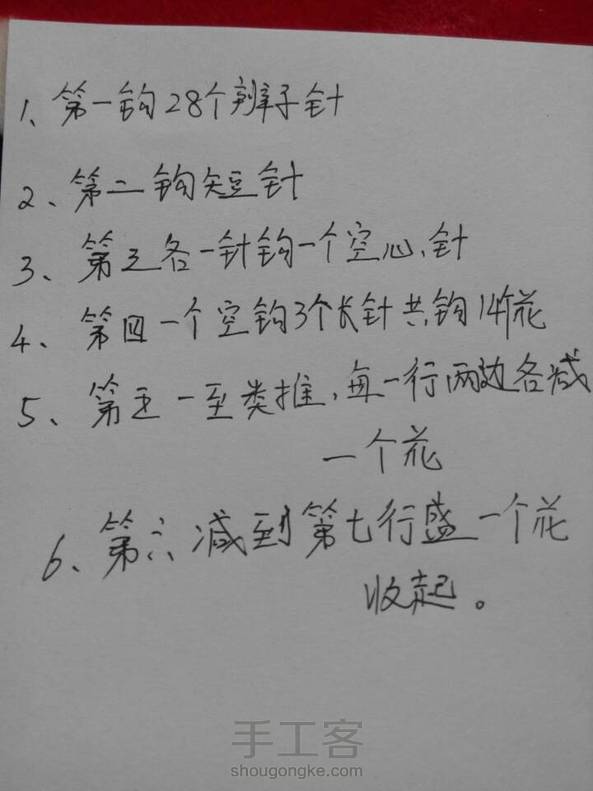 1、第一钩28个辨子针
2、第二钩短针
3、第三各一针钩一个空心针
4、第四一个空钩3个长针共钩14个花
5、第五一至类推，每一行两边各减
一个花
6、第六减到第七行盛一个花
收起。
手工客
shougongke.com